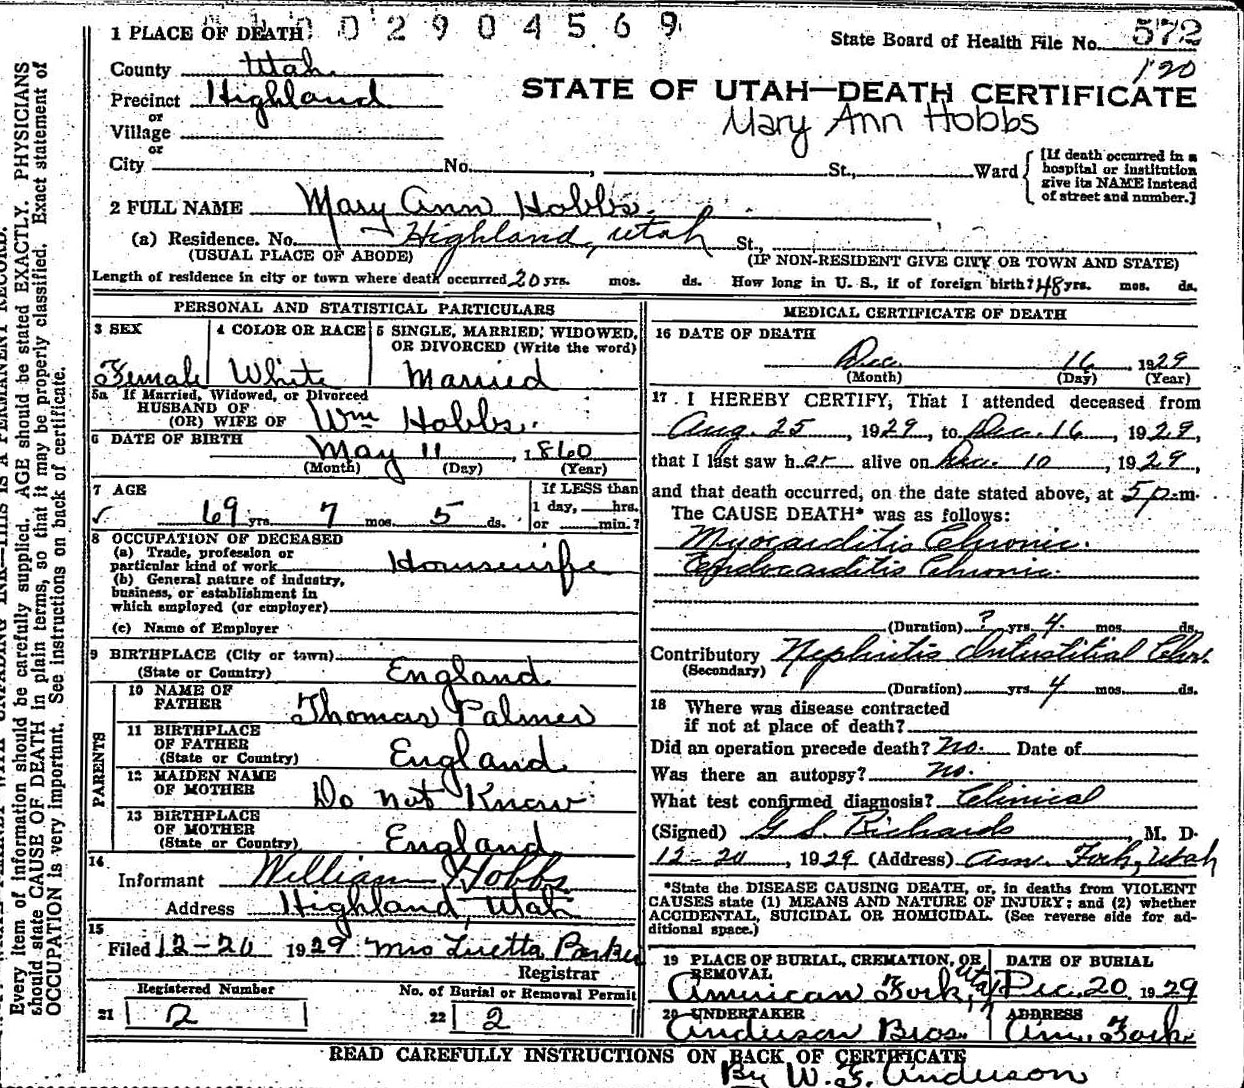 0 1 0 0 2 9 0 4 5 6 9
1 PLACE OF DEATH
State Board of Health File No. 572
120
County Utah
Precinct Highland
or
Village
or
STATE OF UTAH—DEATH CERTIFICATE
Mary Ann Hobbs
City No. , St., Ward
[If death occurred in a
hospital or institution
give its NAME instead
of street and number.]
2 FULL NAME Mary Ann Hobbs
(a) Residence. No. Highland, Utah St.,
(USUAL PLACE OF ABODE) (IF NON-RESIDENT GIVE CITY OR TOWN AND STATE)
Length of residence in city or town where death occurred 20 yrs. mos. ds. How long in U. S., if of foreign birth? 48 yrs. mos. ds.
PERSONAL AND STATISTICAL PARTICULARS
3 SEX 4 COLOR OR RACE 5 SINGLE, MARRIED, WIDOWED,
OR DIVORCED (Write the word)
Female White Married
5a If Married, Widowed, or Divorced
HUSBAND OF
(OR) WIFE OF Wm Hobbs.
6 DATE OF BIRTH
May 11, 1860
(Month) (Day) (Year)
7 AGE If LESS than
1 day, hrs.
69 yrs. 7 mos. 5 ds. or min.?
8 OCCUPATION OF DECEASED
(a) Trade, profession or
particular kind of work Housewife
(b) General nature of industry,
business, or establishment in
which employed (or employer)
(c) Name of Employer
9 BIRTHPLACE (City or town)
(State or Country) England
PARENTS
10 NAME OF
FATHER Thomas Palmer
11 BIRTHPLACE
OF FATHER
(State or Country) England
12 MAIDEN NAME
OF MOTHER Do not Know
13 BIRTHPLACE
OF MOTHER
(State or Country) England
14
Informant William Hobbs
Address Highland, Utah
15
Filed 12-20 1929 Mrs Luetta Parker
Registrar
Registered Number No. of Burial or Removal Permit
21 2 22 2
MEDICAL CERTIFICATE OF DEATH
16 DATE OF DEATH
Dec. 16 1929
(Month) (Day) (Year)
17. I HEREBY CERTIFY, That I attended deceased from
Aug. 25, 1929, to Dec. 16, 1929,
that I last saw her alive on Dec. 10, 1929,
and that death occurred, on the date stated above, at 5 p.m.
The CAUSE DEATH* was as follows:
Myocarditis Chronic.
Endocarditis Chronic.
(Duration) ? yrs. 4 mos. ds.
Contributory Nephritis Intustitial Chr.
(Secondary)
(Duration) yrs. 4 mos. ds.
18 Where was disease contracted
if not at place of death?
Did an operation precede death? No. Date of
Was there an autopsy? No.
What test confirmed diagnosis? Clinical
(Signed) G S Richards, M. D.
12-20, 1929 (Address) Am. Fork, Utah
*State the DISEASE CAUSING DEATH, or, in deaths from VIOLENT
CAUSES state (1) MEANS AND NATURE OF INJURY; and (2) whether
ACCIDENTAL, SUICIDAL OR HOMICIDAL. (See reverse side for ad-
ditional space.)
19 PLACE OF BURIAL, CREMATION, OR
REMOVAL
American Fork, Utah
DATE OF BURIAL
Dec. 20 1929
20 UNDERTAKER
Anderson Bros.
ADDRESS
Am. Fork.
READ CAREFULLY INSTRUCTIONS ON BACK OF CERTIFICATE
By W. F. Anderson
UNFADING INK—THIS IS A PERMANENT RECORD.
Every item of information should be carefully supplied. AGE should be stated EXACTLY. PHYSICIANS
should state CAUSE OF DEATH in plain terms, so that it may be properly classified. Exact statement of
OCCUPATION is very important. See instructions on back of certificate.